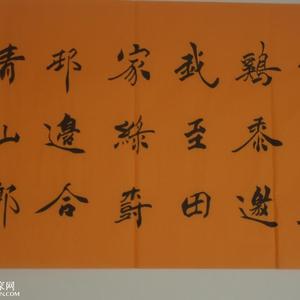 鷄黍邀
我至田
家綠樹
邨邊合
青山郭
家网
.com